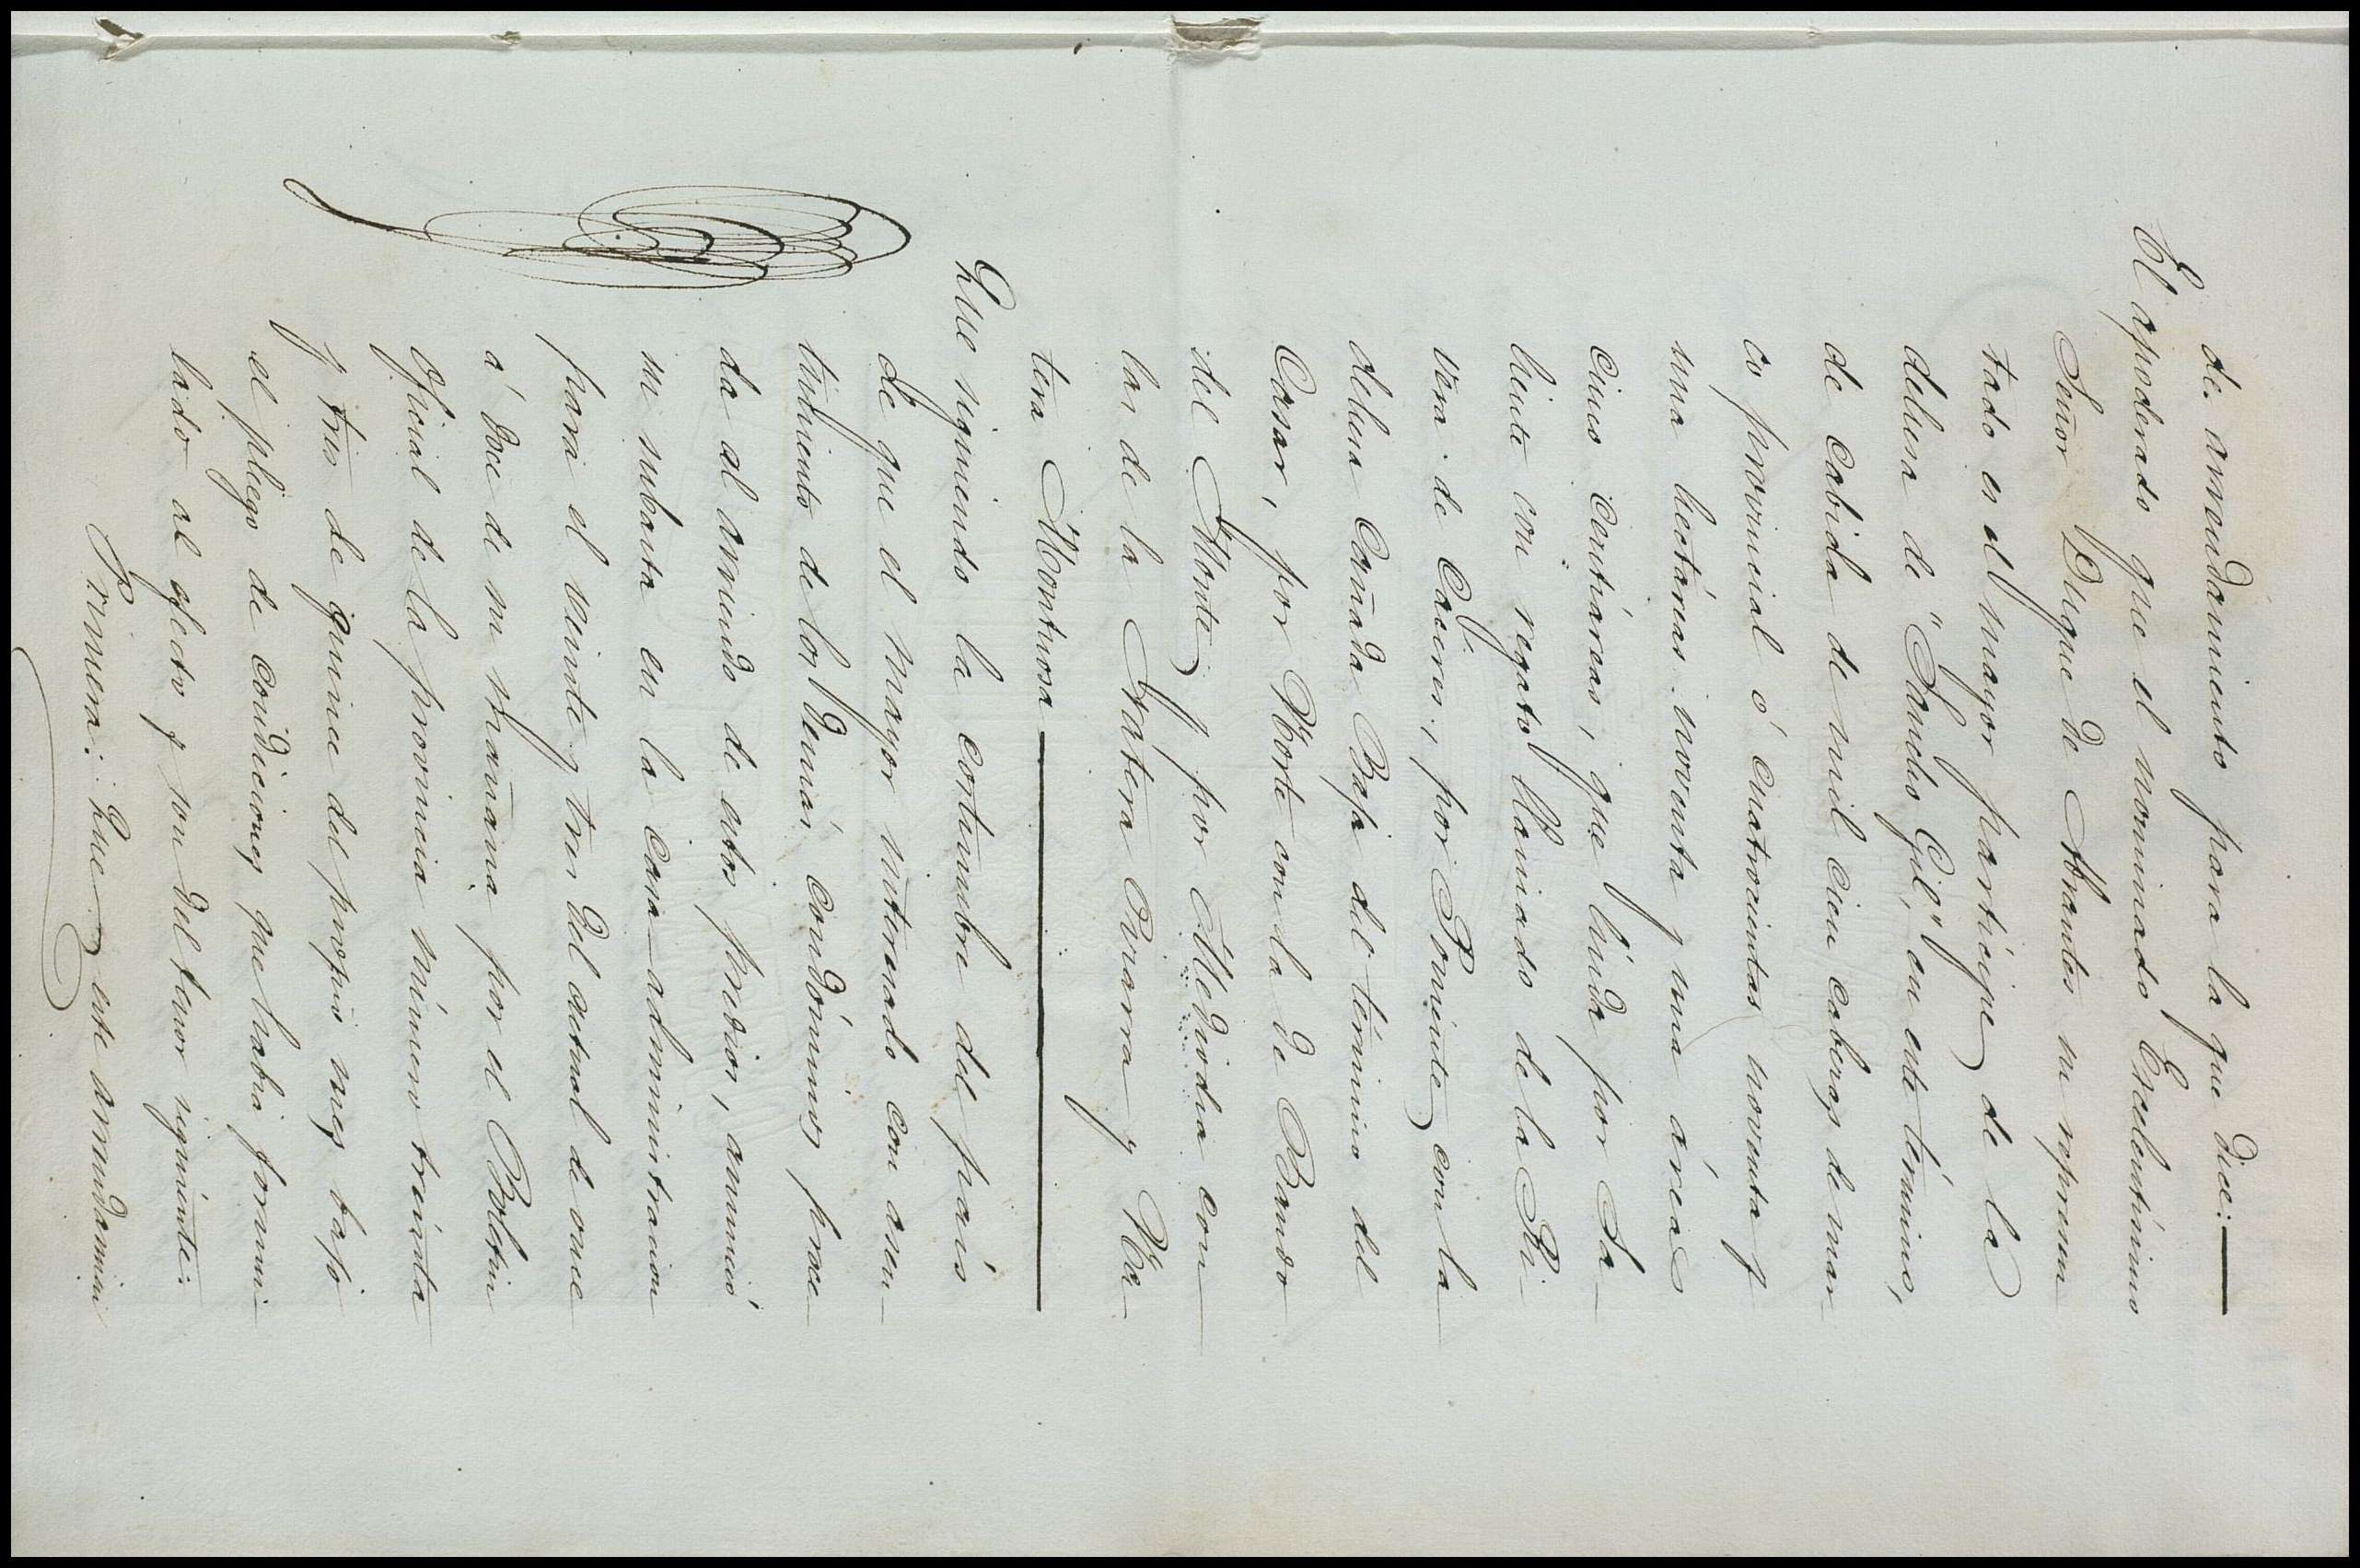 de arrendamiento para la que dice:
El apoderado que el nominado Excelentísimo
Señor Duque de Abrantes su represen
tado es el mayor partícipe de la
dehesa de "Sancho Gil," en este término,
de cabida de mil cien cabezas de mar
co provincial ó cuatrocientas noventa y
una hectáreas noventa y una áreas
cinco centiáreas, que linda por Sa-
liente con regato llamado de la Ri-
vera de Cáceres, por Poniente con la
dehesa Cañada Baja del término del
Casar, por Norte con la de Banco
del Monte y por Mediodia con
las de la Frátera Ovarra y Fra-
tera Montuosa
Que siguiendo la costumbre del país
de que el mayor interesado con asen-
timiento de los demás condóminos proce-
da al arriendo de estos predios, anunció
su subasta en la casa-administracion
para el veinte y tres del actual de once
á doce de su mañana por el Boletin
Oficial de la provincia número treinta
y tres de quince del propio mes bajo
el pliego de condiciones que habia formu-
lado al efecto y son del tenor siguiente:
Primera: Que este arrendamien